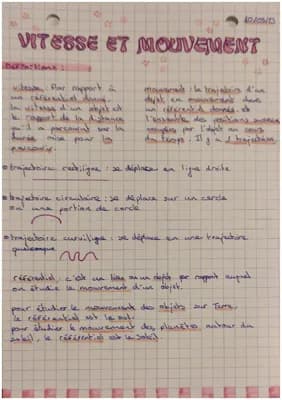 VITESSE ET MOUVEMENT
Définitions :
vitesse : Par rapport à
un référentiel donné,
la vitesse d'un objet est
le rapport de la distance
qu'il a parcouru sur la
durée mise pour la
parcourir.
mouvement : la trajectoire d'un
objet en mouvement dans
un référentiel donné est
l'ensemble des positions
occupées par l'objet au cours
du temps. Il y a 3 trajectoires
trajectoire rectiligne : se déplace en ligne droite
trajectoire circulaire : se déplace sur un cercle
ou une portion de cercle
trajectoire curviligne : se déplace en une trajectoire
quelconque
référentiel, c'est un lieu ou un objet par rapport auquel
on étudie le mouvement d'un objet.
pour étudier le mouvement des objets sur Terre,
le référentiel est le sol.
pour étudier le mouvement des planètes autour du
soleil, le référentiel est le Soleil.